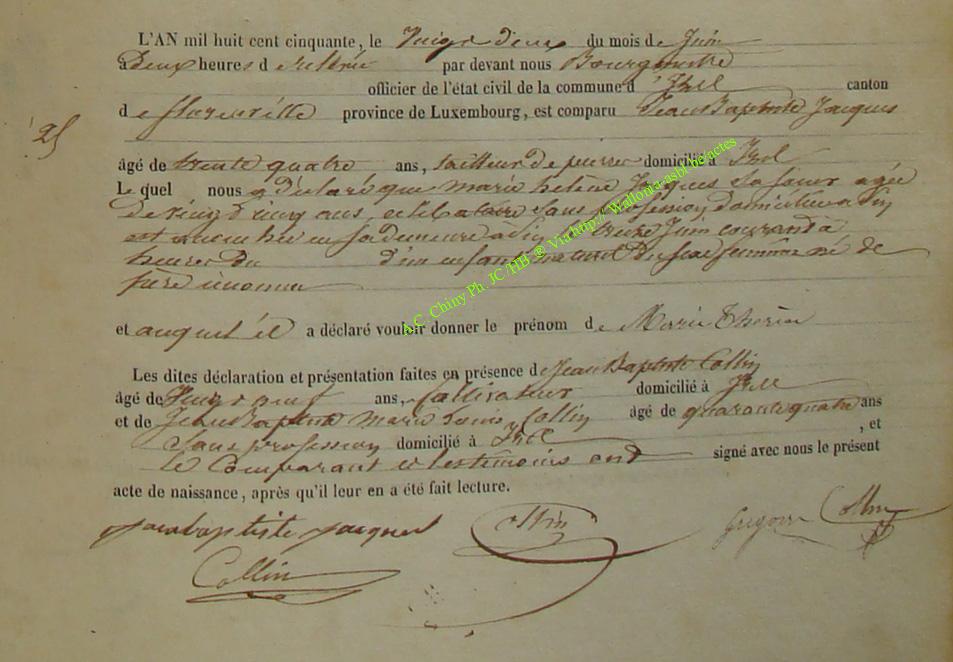 L'AN mil huit cent cinquante, le Vingt deux du mois de Juin
à Deux heures d e relevée par devant nous Bourgmestre
officier de l'état civil de la commune d' Izel canton
d e florenville province de Luxembourg, est comparu Jean Baptiste Jacques
25
âgé de trente quatre ans, tailleur de pierres domicilié à Izel
Le quel nous a déclaré que marie helène Jacques sa soeur agée
De vingt cinq ans, celibataire sans profession, domiciliée a
est accouchée en sa demeure a le treize Juin courant à
heures du d'un enfant naturel du sexe feminin né de
père inconnu
et auquel il a déclaré vouloir donner le prénom d e Marie Therèse
Les dites déclaration et présentation faites en présence d e Jean Baptiste Collin
âgé de Vingt neuf ans, Cultivateur domicilié à Izel
et de Jean Baptiste marie Louis Collin âgé de quarante quatre ans
Sans profession domicilié à Izel , et
le Comparant et les temoins ont signé avec nous le présent
acte de naissance, après qu'il leur en a été fait lecture.
jeanbaptiste jacques Collin Gregoire Collin
Collin
A.C. Chiny Ph. JC /HB ® Via http:// Wallonia-asbl.be/actes